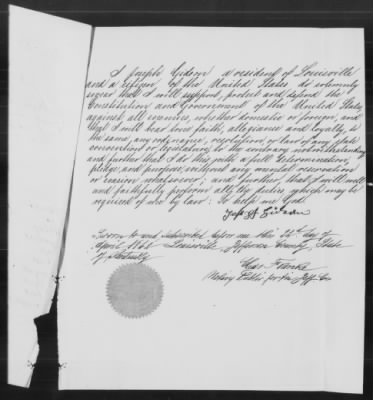 I Joseph Gideon a resident of Louisville
and a citizen of the United States do solemnly
swear that I will support, protect and defend the
Constitution and Government of the United States
against all enemies, whether domestic or foreign, and
that I will bear true faith, allegiance and loyalty to
the same, any ordinance, resolution or law of any State
convention or legislature, to the contrary notwithstanding
and further that I do this with a full determination,
pledge and purpose, without any mental reservation
or evasion whatsoever; and further, that I will well
and faithfully perform all the duties which may be
required of me by law: So help me God.
Gideon
Sworn to and subscribed before me this day of
April 186 Louisville, Jefferson County, State
of Kentucky
Notary Public for